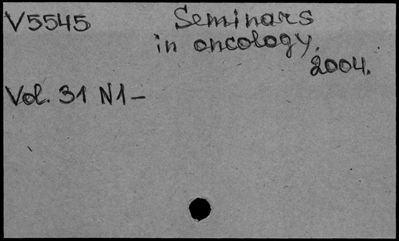 V5545 Seminars
in oncology,
2004.
Vol. 31 N1-